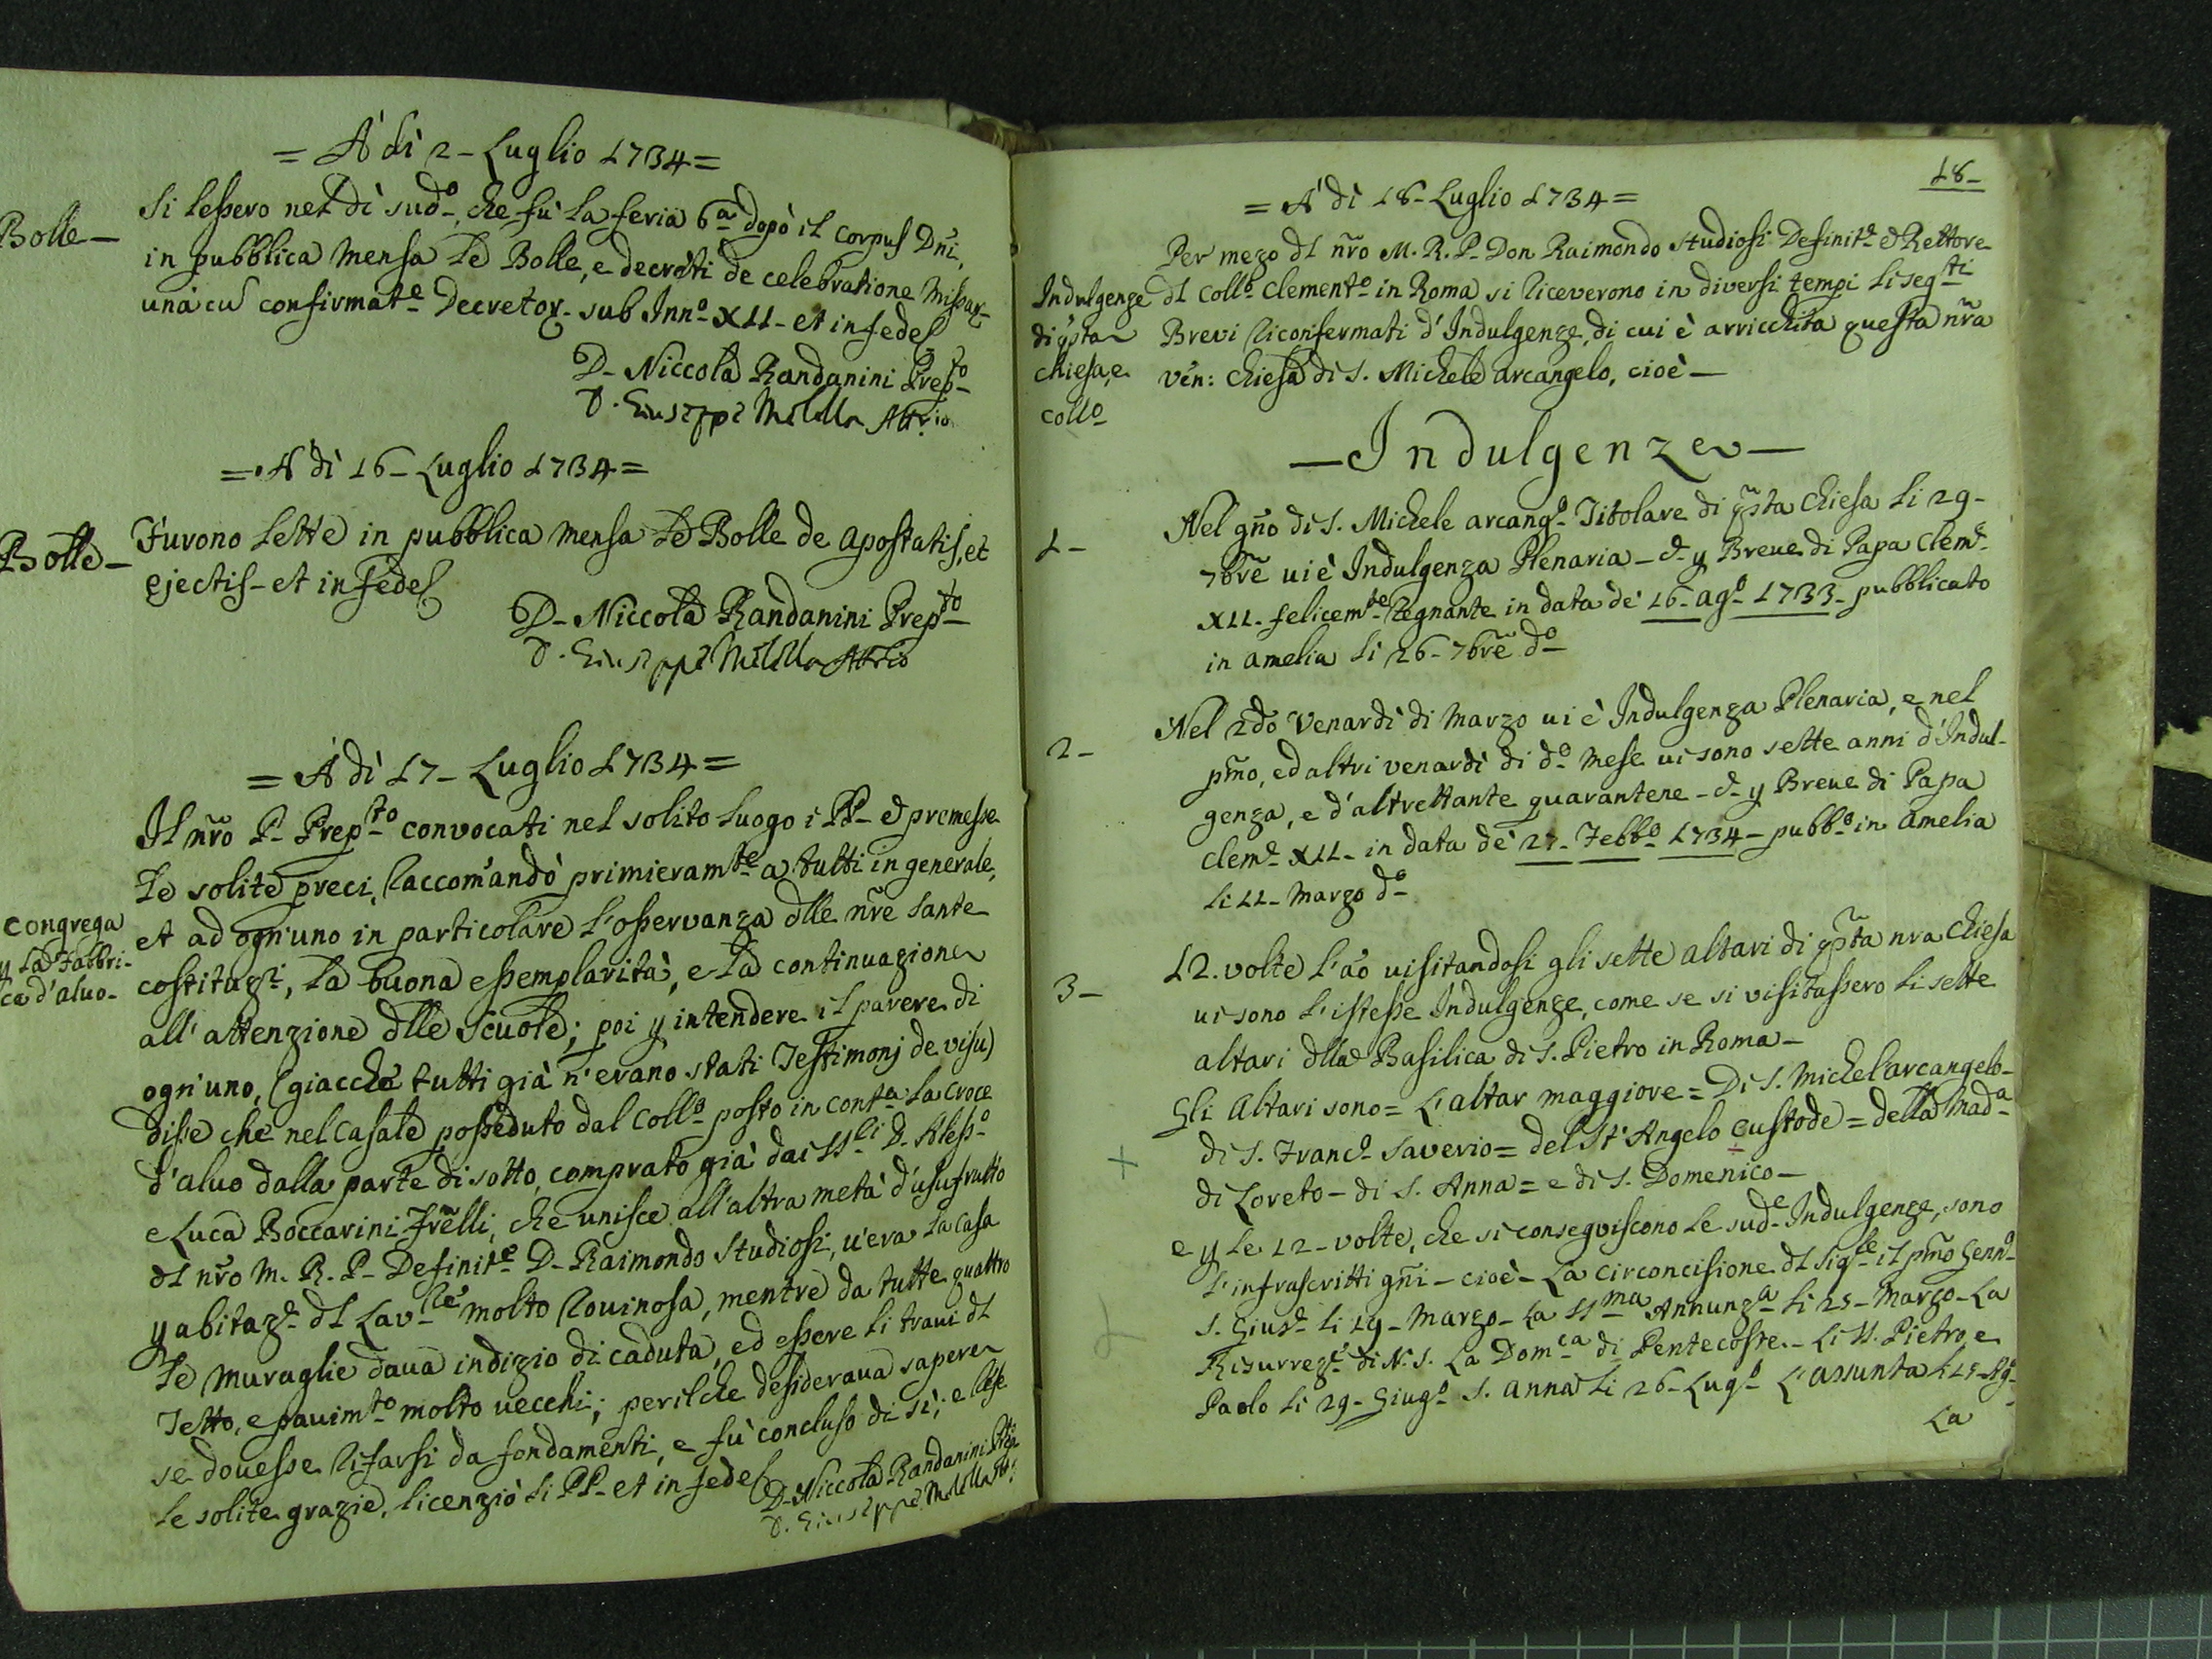 = A' dì 2 - Luglio 1734 =
Bolle -
Si lessero nel dì sud.o, che fù la feria 6.a dopò il Corpus Dñi,
in pubblica mensa le Bolle, e decreti de celebratione Missar.
unà cū confirmat.e Decretor. sub Inn.o XII - et in fede
D - Niccola Randanini Prep.to
D. Giuseppe Melilla Att.rio
= A dì 16 - Luglio 1734 =
Bolle -
Furono lette in pubblica mensa le Bolle de Apostatis, et
ejectis - et in fede
D - Niccola Randanini Prep.to
D. Giuseppe Melilla Att.rio
= A' dì 17 - Luglio 1734 =
Il nr̃o P - Prep.to convocati nel solito luogo i PP - e premesse
le solite preci, raccomandò primieram.te a tutti in generale,
et ad ogn'uno in particolare l'osservanza dlle nr̃e sante
Congrega
y la Fabbri-
ca d'aluo -
costituz.i, la buona essemplarità, e la continuazione
all'attenzione dlle scuole; poi y intendere il parere di
ogn'uno, (giacche tutti già n'erano stati Testimonj de visu)
disse che nel casale posseduto dal Coll.o posto in cont.a la Croce
d'aluo dalla parte di sotto, comprato già dai SS.ri D - Aless.o
e Luca Boccarini Fr̃elli, che unisce all'altra metà d'usufrutto
dl nr̃o M. R. P - Definit.e D - Raimondo Studiosi, u'era la casa
y abitaz.e dl Lav.re molto rouinosa, mentre da tutte quattro
le muraglie daua indizio di caduta, ed essere li traui dl
Tetto, e pauim.to molto uecchi; perilche desideraua sapere
se douesse rifarsi da fondamenti, e fù concluso di sì; e rese
le solite grazie, licenziò li PP - et in fede
D - Niccola Randanini Prep.
D. Giuseppe Melilla Att.
18 -
= A' dì 18 - Luglio 1734 =
Per mezo dl nr̃o M. R. P - Don Raimondo Studiosi Definit.e e Rettore
Indulgenze
di qp̃sta
chiesa, e
coll.o
dl Coll.o Clement.o in Roma si riceverono in diversi tempi li seg.ti
Brevi riconfermati d'Indulgenze, di cui è arricchita questa nr̃a
ven: Chiesa di S. Michele arcangelo, cioè -
- Indulgenze -
1 -
Nel gño di S. Michele arcang.o Titolare di qp̃sta Chiesa li 29 -
7br̃e ui è Indulgenza Plenaria - e y Breue di Papa Clem.e
XII - felicem.te regnante in data de' 16 - ag.o 1733 - pubblicato
in amelia li 26 - 7br̃e d.o
2 -
Nel 2do Venardì di Marzo ui è Indulgenza Plenaria, e nel
pm̃o, ed altri venardì di d.o Mese ui sono sette anni d'Indul-
genza, e d'altrettante quarantene - e y Breue di Papa
Clem.e XII - in data de' 27 - Febb.o 1734 - pubb.o in Amelia
li 11 - Marzo d.o
3 -
12. volte l'ão uisitandosi gli sette altari di qp̃sta nra Chiesa
ui sono l'istesse Indulgenze, come se si visitassero li sette
altari dlla Basilica di S. Pietro in Roma -
Gli Altari sono = L'altar maggiore = Di S. Michel'arcangelo -
+
di S. Franc.o Saverio = del St'Angelo Custode = della Mad.a
di Loreto - di S. Anna = e di S. Domenico -
e y le 12 - volte, che si conseguiscono le sud.e Indulgenze, sono
l'infrascritti gñi - cioè - La Circoncisione dl Sig.re il pm̃o Genn.o
S. Gius.e li 19 - Marzo - La SS.ma Annunz.a li 25 - Marzo - La
Risurrez.e di N. S. La Dom.ca di Pentecoste - Li SS. Pietro, e
Paolo li 29 - Giug.o S. Anna li 26 - Lug.o L'assunta li 15 - Ag.o
La